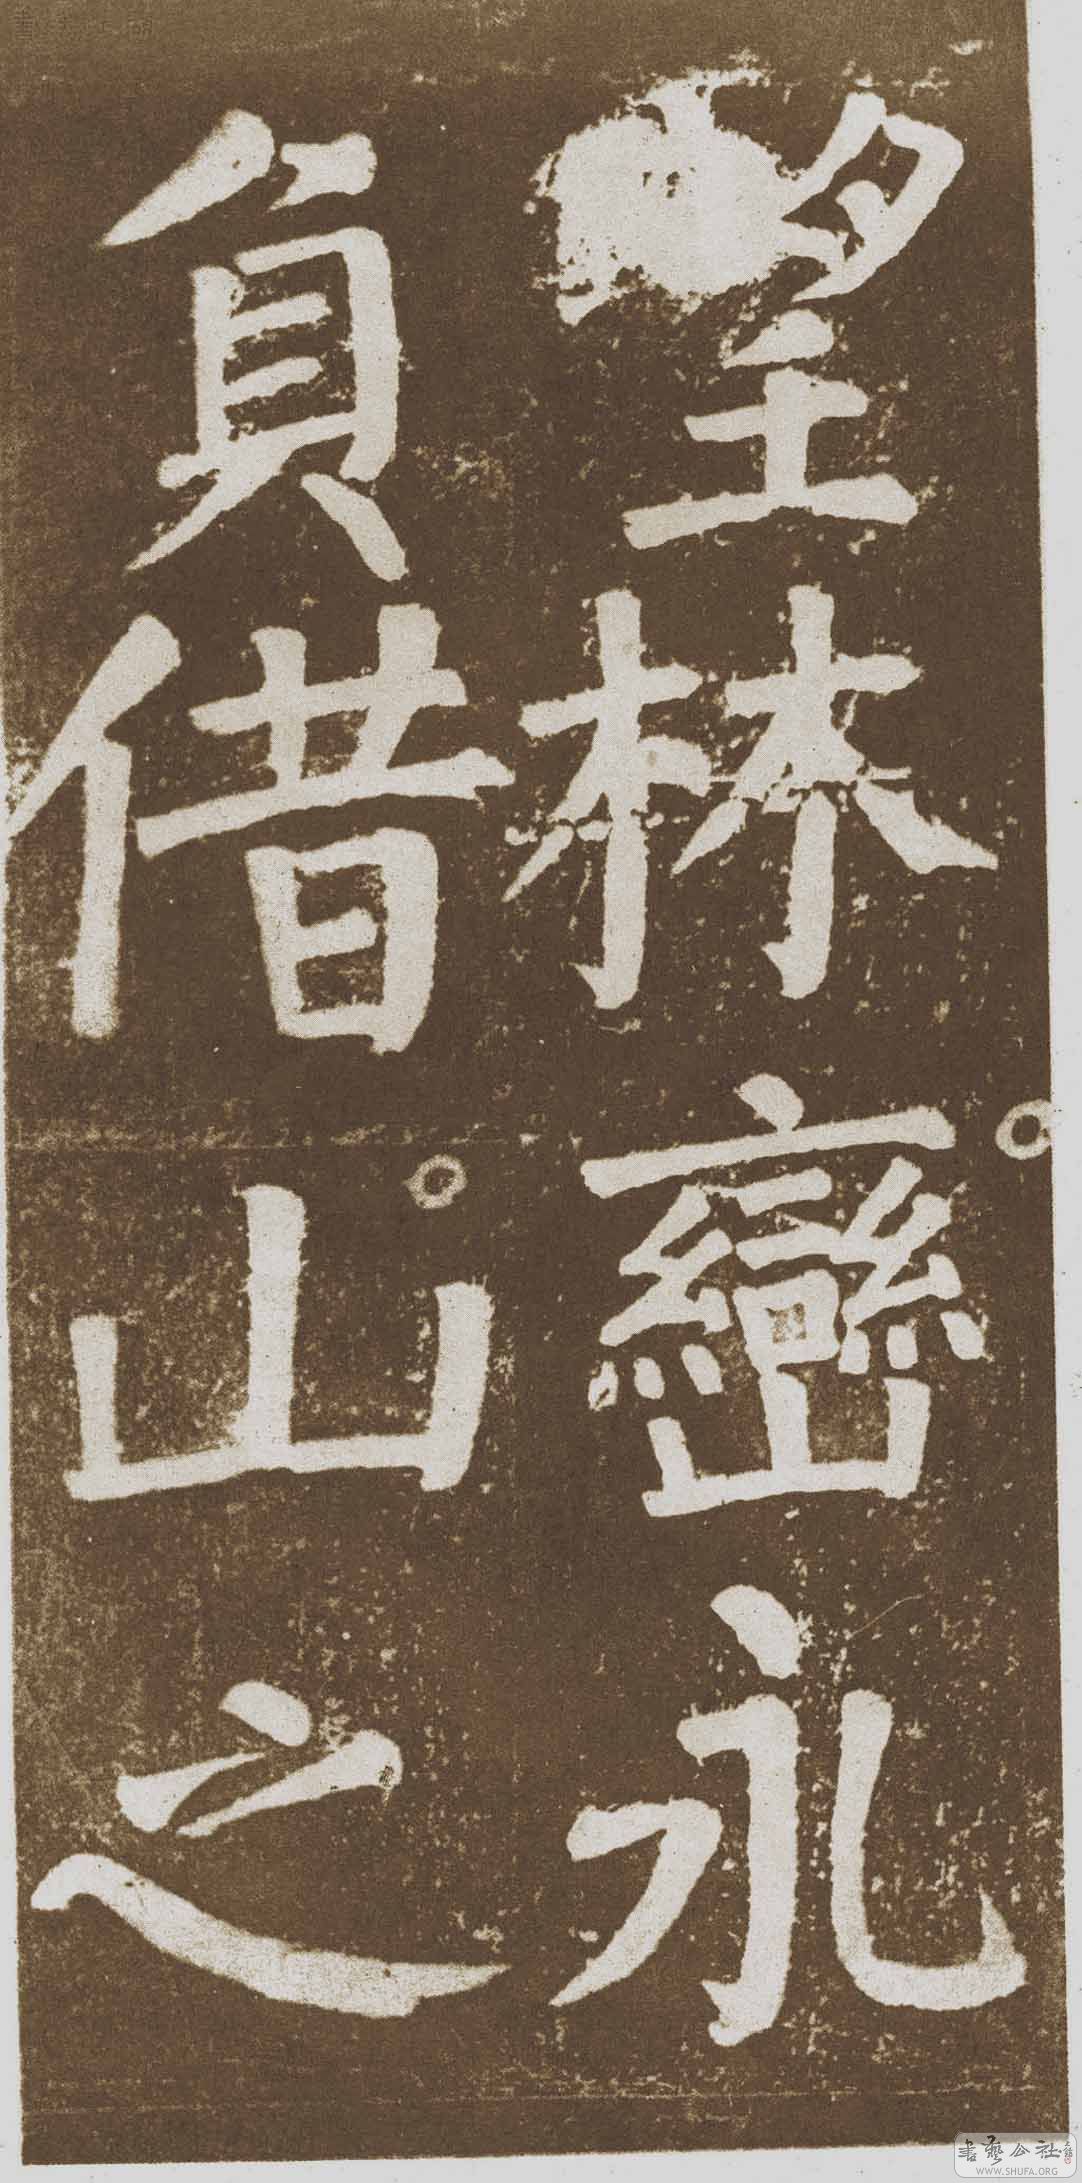 望林巒永
負借山之
書藝公社
WWW.SHUFA.ORG